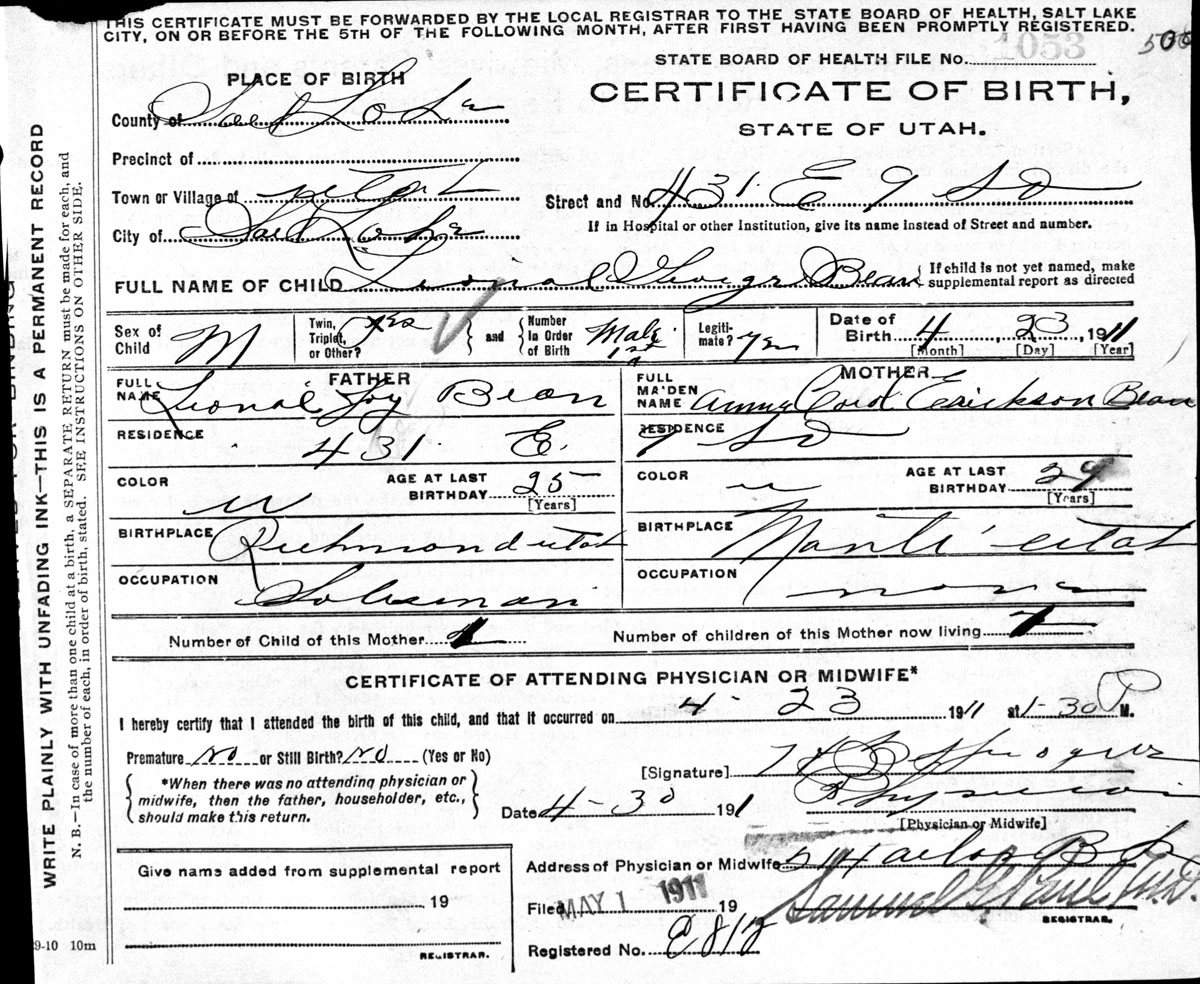 THIS CERTIFICATE MUST BE FORWARDED BY THE LOCAL REGISTRAR TO THE STATE BOARD OF HEALTH, SALT LAKE
CITY, ON OR BEFORE THE 5TH OF THE FOLLOWING MONTH, AFTER FIRST HAVING BEEN PROMPTLY REGISTERED.
1053
STATE BOARD OF HEALTH FILE No.
PLACE OF BIRTH
CERTIFICATE OF BIRTH,
STATE OF UTAH.
County of Salt Lake
Precinct of
Town or Village of Utah
Street and No. 431 E 9 So
City of Salt Lake
If in Hospital or other Institution, give its name instead of Street and number.
FULL NAME OF CHILD Lional George Bean
If child is not yet named, make supplemental report as directed
Sex of Child M
Twin, Triplet, or Other? yes
and
Number in Order of Birth Male 1st
Legitimate? Yes
Date of Birth 4 23, 1911
[Month] [Day] [Year]
FATHER
FULL NAME Lional Foy Bean
RESIDENCE 431 E.
COLOR W
AGE AT LAST BIRTHDAY 25
[Years]
BIRTHPLACE Richmond Utah
OCCUPATION Salesman
MOTHER
FULL MAIDEN NAME Erickson Bean
RESIDENCE 9 So
COLOR W
AGE AT LAST BIRTHDAY 29
[Years]
BIRTHPLACE Manti Utah
OCCUPATION None
Number of Child of this Mother
Number of children of this Mother now living
CERTIFICATE OF ATTENDING PHYSICIAN OR MIDWIFE*
I hereby certify that I attended the birth of this child, and that it occurred on 4 - 23 1911 at 1-30 P M.
Premature No or Still Birth? No (Yes or No)
*When there was no attending physician or
midwife, then the father, householder, etc.,
should make this return.
[Signature]
Date 4-30 1911
Physician
[Physician or Midwife]
Give name added from supplemental report
19
REGISTRAR.
Address of Physician or Midwife
Filed MAY 1 1911 19
Samuel G Paul M.D.
REGISTRAR.
Registered No.
9-10 10m
WRITE PLAINLY WITH UNFADING INK—THIS IS A PERMANENT RECORD
N. B.—In case of more than one child at a birth, a SEPARATE RETURN must be made for each, and
the number of each, in order of birth, stated. SEE INSTRUCTIONS ON OTHER SIDE.